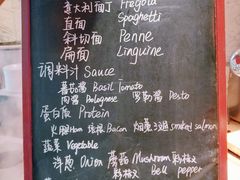 意大利面丁 Fregola
直面 Spaghetti
斜切面 Penne
扁面 Linguine
调料汁 Sauce
蕃茄酱 Basil Tomato
肉酱 Bolognese 罗勒酱 Pesto
蛋白质 Protein
火腿Ham 培根Bacon 烟熏三文鱼 smoked salmon
蔬菜 Vegetable
洋葱 Onion 蘑菇 Mushroom
Bell pepper